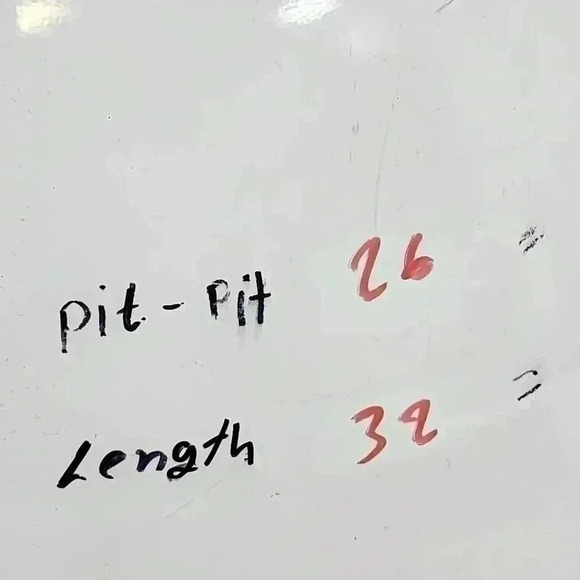 pit - pit 26 "
Length 32 "